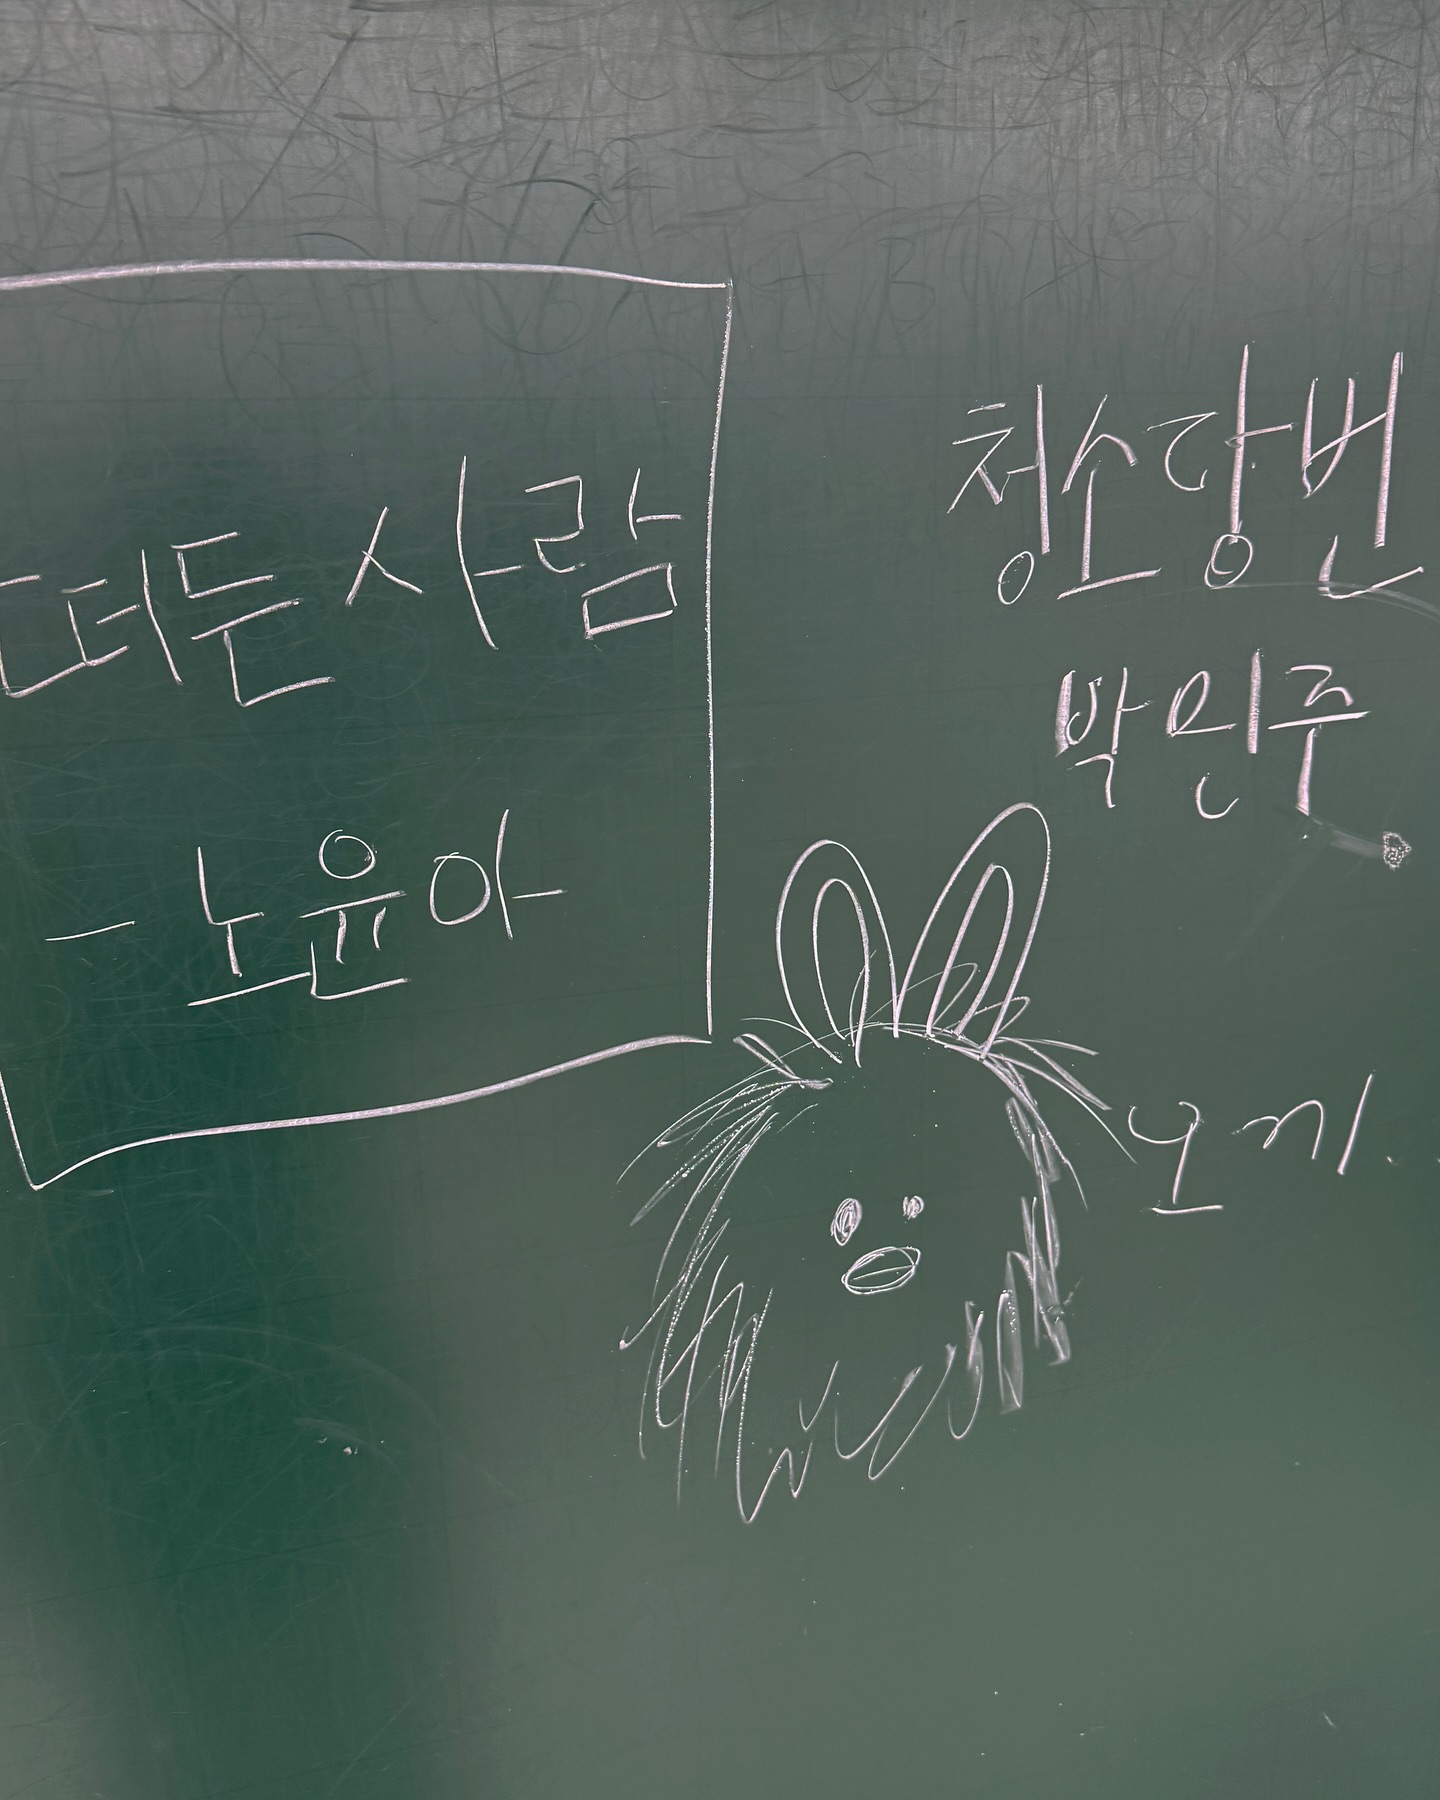 떠든사람
- 노윤아
청소당번
박민주
오께..